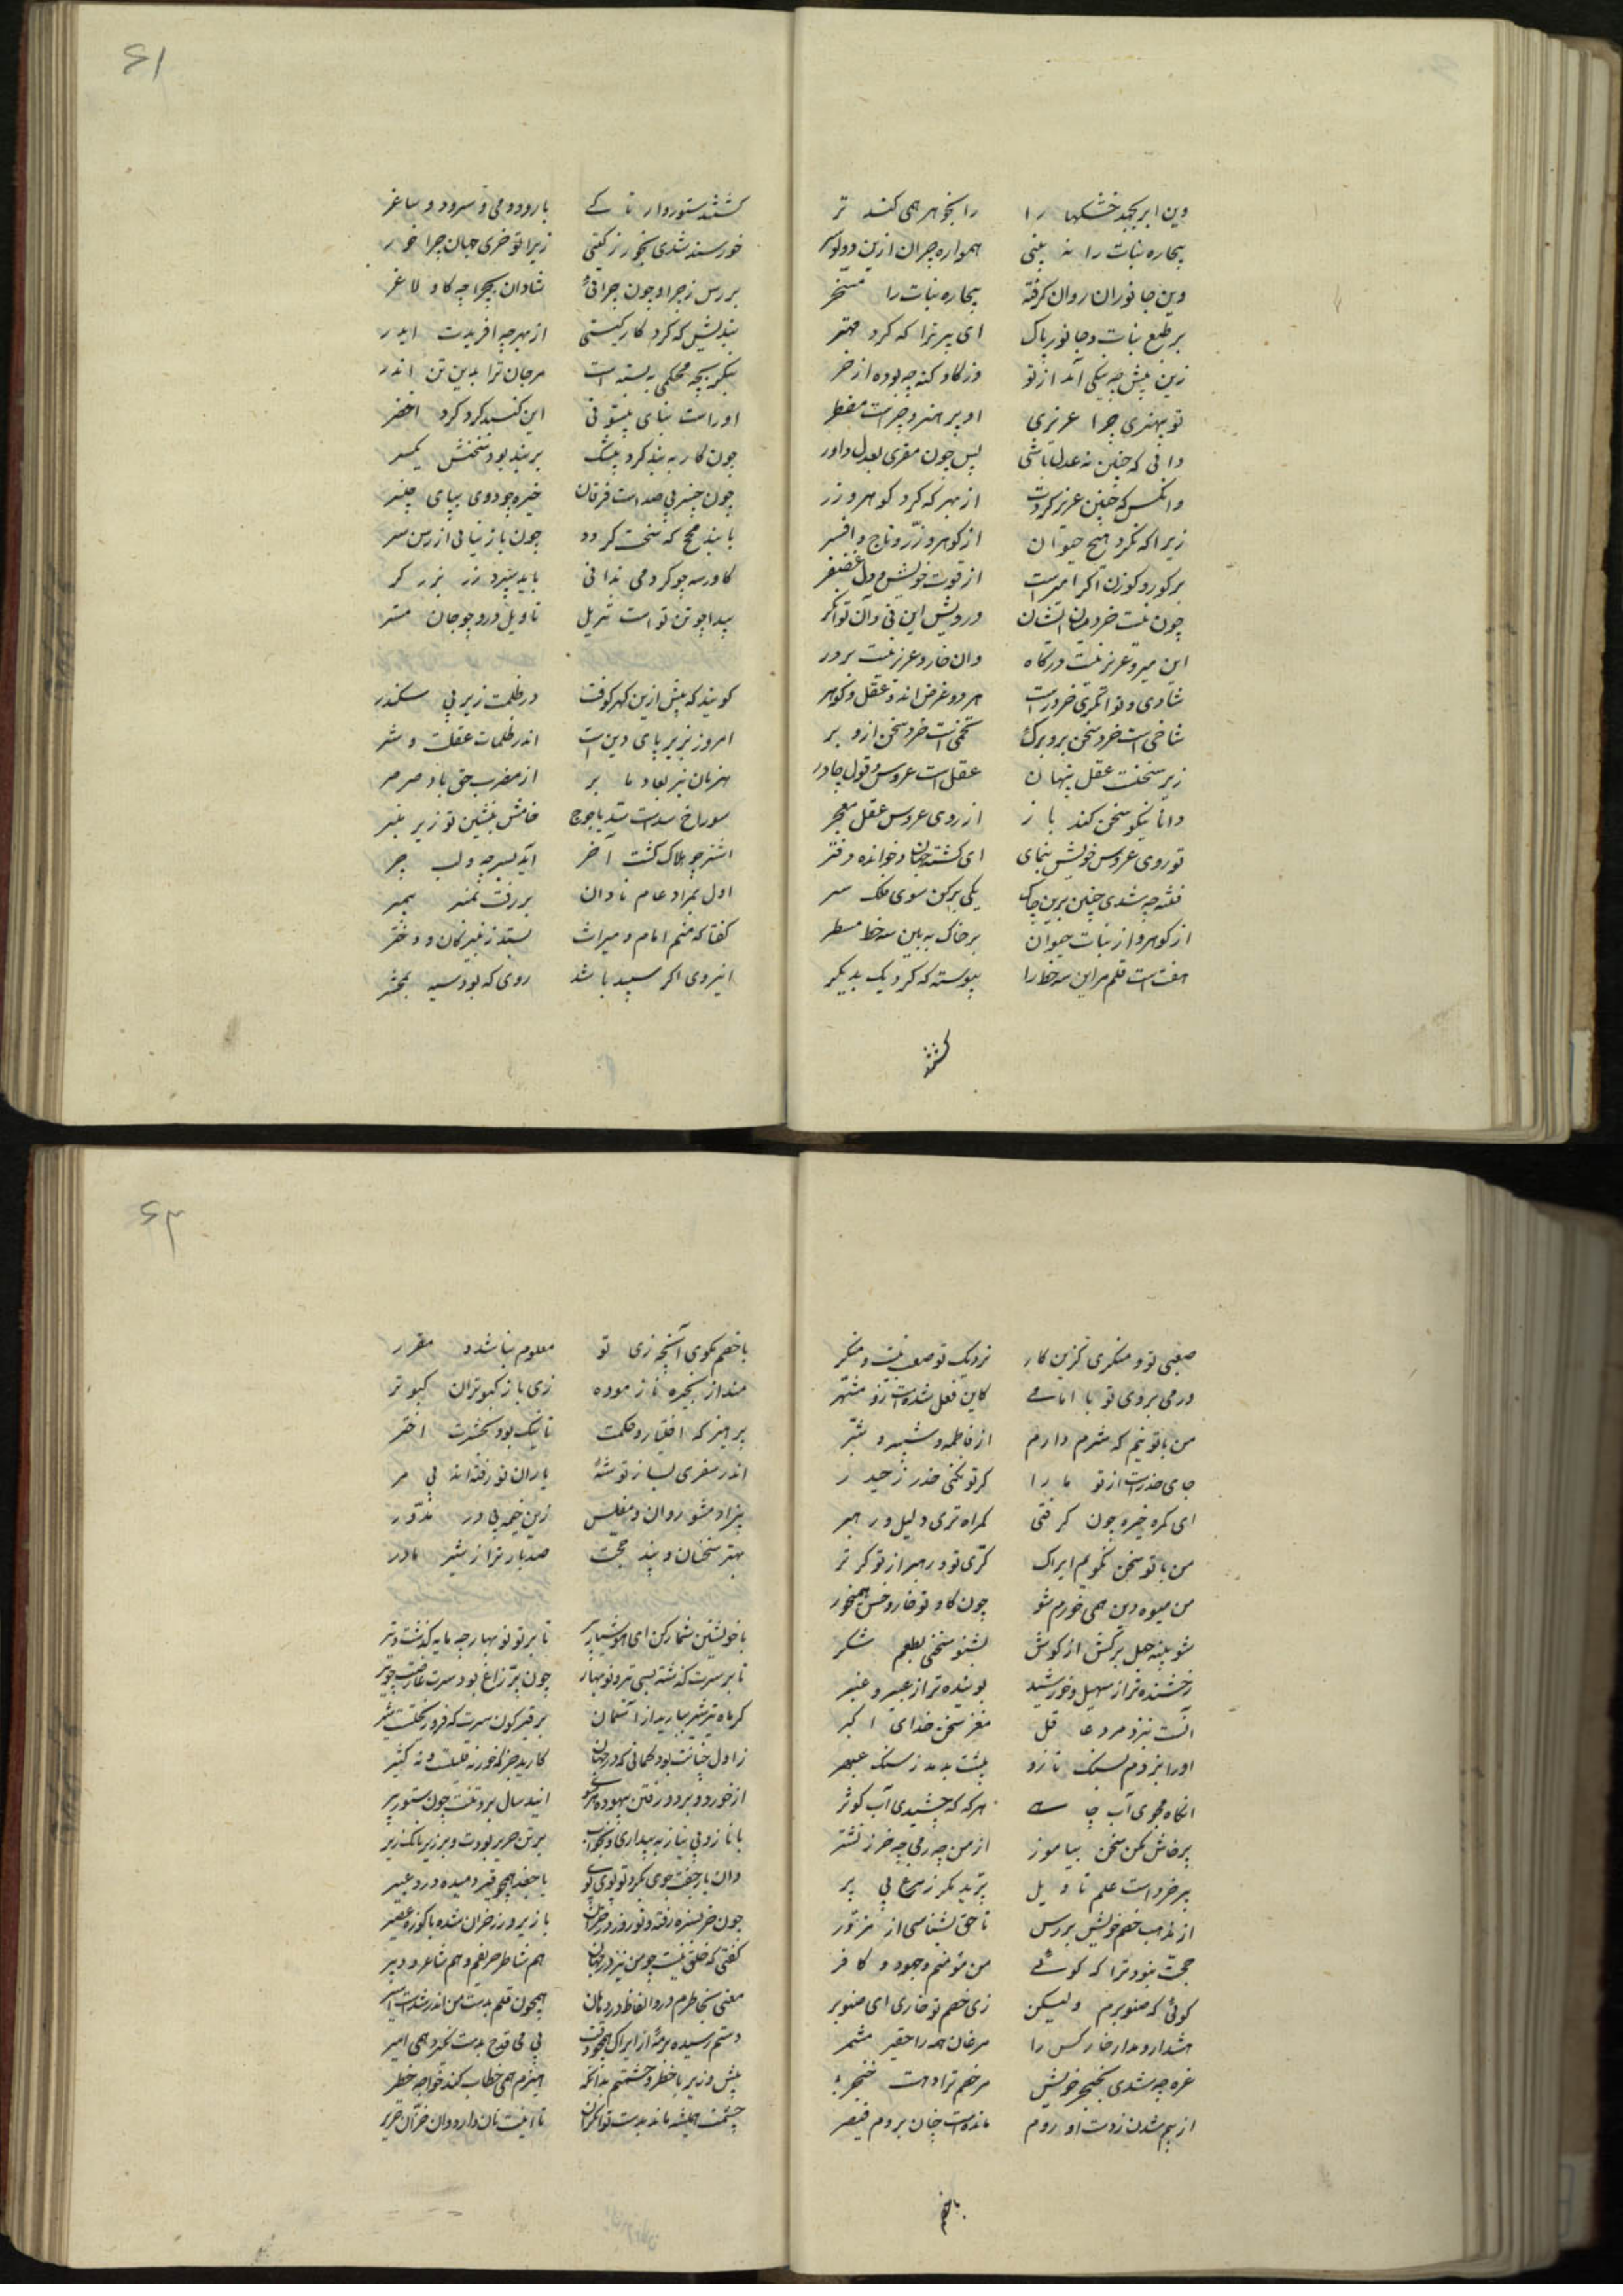 وین ابر بجهد خشکها را
را بجو هر همی کند تر
بیچاره نبات را نه بینی
همواره جران ازین دو
وین جانوران روان گرفته
بیچاره نبات را مسخر
بر طبع نبات و جانور پاک
ای پیر ترا که کرد مهتر
زین پیش چه نیکی آمد از تو
وز گاو گنه چه بوده از خر
تو بیهنری چرا عزیزی
او پر هنر و چراست مضطر
دانی که چنین نه عدل باشی
پس چون مقری بعدل داور
وانکس که چنین عزیز کردت
از بهر که کرد گوهر و زر
زیرا که نکرد هیچ حیوان
از گوهر و زر و تاج و افسر
بر گور و گوزن اگر امیر است
از قوت خویش و دل غضنفر
چون نیست خرد میان ایشان
درویش این نی و آن توانگر
این میر و عزیز نیست درگاه
وان خار و عزیز نیست بر در
شادی و توانگری خرد راست
هر دو عرض اند و عقل و گوهر
شاخی است خرد سخن برو برگ
تخمی است خرد سخن ازو بر
زیر سخنست عقل پنهان
عقل است عروس و قول چادر
دانا نیکو سخن کند باز
از روی عروس عقل معجر
تو روی عروس خویش بنمای
ای گشته جهان و خوانده دفتر
فتنه چه شدی چنین برین خاک
یکی برکن سوی فلک سر
از گوهر و از نبات حیوان
بر خاک به بین سه خط مسطر
هفت است قلم مر این سه خط را
پیوسته که کرد یک بدیگر
گشتند
۶۱
گشتند ستوروار تا کے
با رود و می و سرود و ساغر
خورسند شدی بخور ز گیتی
زیرا تو خری جهان چرا خور
بررس ز چرا و چون چرائی
شادان بچرا چه گاو لاغر
بندیش که کرد کار گیتی
از بهر چه آفریدت ایدر
بنگر بچه محکمی به بسته است
مر جان ترا بدین تن اندر
او راست بنای بیستونی
این گنبد گرد گرد اخضر
چون کار به بند کرد بیشک
بر بند بود سخنش یکسر
چون چنبر بی صداست فرقان
خیره چه دوی بپای چنبر
با بند مح که سخت گردد
چون باز نیابی از رسن سر
کاورسه چو کرد می ندانی
باید سپرد زر بزرگر
پیدا چو تن تو است تنزیل
تاویل درو چو جان مستر
گویند که پیش ازین گهر کوفت
در ظلمت زیر پی سکندر
امروز بزیر پای دین است
اندر ظلمات عقلت و شر
هزمان بنر بعاد ما بر
از مغرب حق باد صرصر
سوراخ شدست سد یاجوج
خامش بنشین تو زیر بنبر
اشتر چو هلاک گشت آخر
آید بسر چه و لب جر
اول بمراد عام نادان
بر رفت بمنبر پیمبر
گفتا که منم امام و میراث
بستد ز نبیرگان و دختر
این روی اگر سپید باشد
روی که بود سیه بمحشر
صعبی تو و منکری گزین کار
نزدیک تو صعب نیست و منکر
ور می بروی تو با امامے
کاین فعل شدست ازو مشهر
من با تو نیم که شرم دارم
از فاطمه و شبیر و شبر
جای حذر است از تو ما را
گر تو نکنی حذر ز حیدر
ای گمره خیره چون گرفتی
گمراه تری دلیل و رهبر
من با تو سخن نگویم ایراک
کری تو و رهبر از تو کر تر
من میوه دین همی خورم شو
چون گاو تو خار و خس همیخور
شو پنبه جهل برکش از گوش
بشنو سخنی بطعم شکر
رخشنده تر از سهیل و خورشید
بوینده تر از عبیر و عنبر
آنست بنزد مرد عاقل
مغز سخن خدای اکبر
او را بزدم بسنگ تا زو
بیشت بدمد ز سنگ عبهر
انگاه مجوی آب چاہے
هر گه که چشیدی آب کوثر
پرخاش مکن سخن بیاموز
از من چه رمی چه خر ز نشتر
پر خرد است علم تاویل
پرید مگر ز مرغ بی پر
از مذهب خصم خویش بررس
تا حق بشناسی از مزور
حجت نبود ترا که گوئے
من مؤمنم و جهود و کافر
گوئی که صنوبرم ولیکن
زی خصم تو خاری ای صنوبر
هشدار و مدار خار کس را
مرغان همه را حقیر مشمر
غره چه شدی بخنجر خویش
مر خصم ترا دهست خنجر
از بیم شدن ز دست او روم
مانده است چنان بروم قیصر
با خصم
۶۲
با خصم مگوی آنچه زی تو
معلوم نباشد و مقرر
منداز بخیره نازموده
زی باز کبوتران کبوتر
پرهیز که اختیار و حکمت
تا نیک بود بحشرت اختر
اندر سفری بساز توشه
یاران تو رفته اند بی مر
بی زاد مشو روان و مفلس
زین خیمه بی در مدور
بهتر سخنان و پند حجت
صد بار ترا ز شیر مادر
با خویشتن شمار کن ای هوشیار پیر
تا بر تو نوبهار چه مایه گذشت و تیر
تا بر سرت گذشته بسی تیر و نوبهار
چون پر زاغ بود سرت عارضت چو
گر ماه تیر شیر نبارید از آسمان
بر قیرگون سرت که فرو ریختست شیر
ز اول چنانت بود گمانی که در جهان
کاریت جز که خور نه قلیلست و نه کثیر
از خورد و برد و رفتن بیهوده هر سوی
اند سال بر تنت چون ستور پیر
با ناز و بی نیاز به بیداری و بخواب
بر تن حریر بودت و بر زیر بانگ زیر
وان یار جفت جوی بگرد تو پوی پوی
با جعد همچو قیر دمیده درو عبیر
گفتی که خلق نیست چو من نیز در جهان
هم شاطر حریفم و هم شاعر و دبیر
معنی بخاطرم در و الفاظ در دهان
همچون قلم بدست من اندر شدست اسیر
پیش وزیر با خطر و حشمتم بدانکه
میرم همی خطاب کند خواجه خطیر